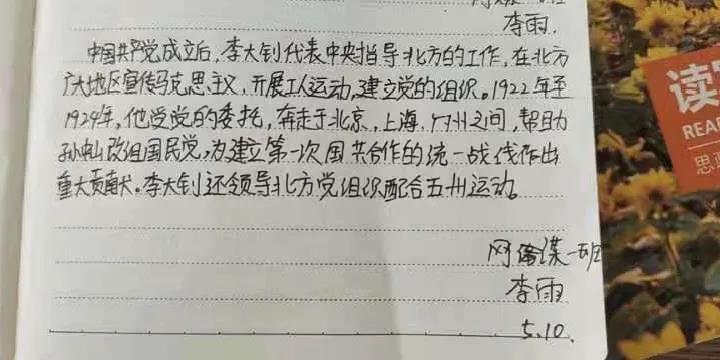 李雨.
中国共产党成立后,李大钊代表中央指导北方的工作,在北方
广大地区宣传马克思主义,开展工人运动,建立党的组织。1922年至
1924年,他受党的委托,奔走于北京,上海,广州之间,帮助
孙中山改组国民党,为建立第一次国共合作的统一战线作出
重大贡献。李大钊还领导北方党组织配合五卅运动。
一班
李雨
5.10.
读
REA
思